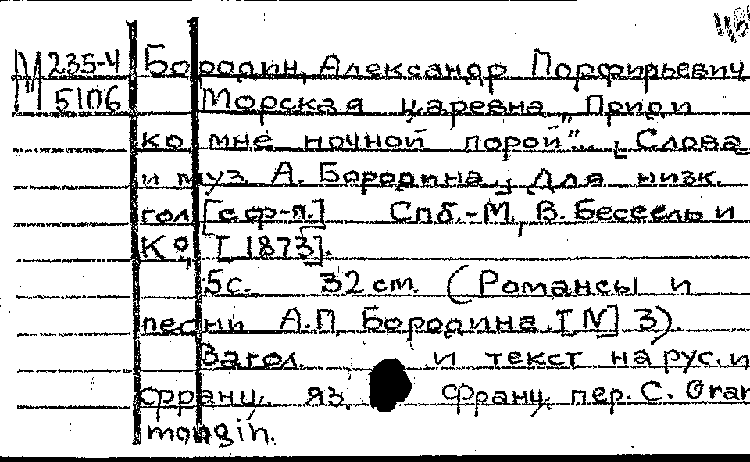 М 235-4 Бородин, Александр Порфирьевич
5106 Морская царевна „Приди
ко мне ночной порой"... Слова
и муз. А. Бородина. Для низк.
гол. [с ф-п.] Спб.-М., В. Бессель и
Кº, [1873].
5с. 32 см. (Романсы и
песни А.П. Бородина. [№] 3).
Загол. и текст на рус. и
франц. яз. Франц. пер. С. Gran
mougin.